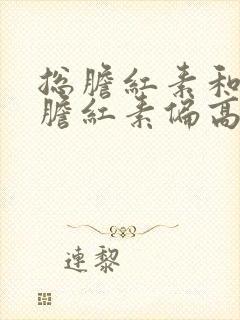 总膽紅素和
膽紅素偏高
連黎